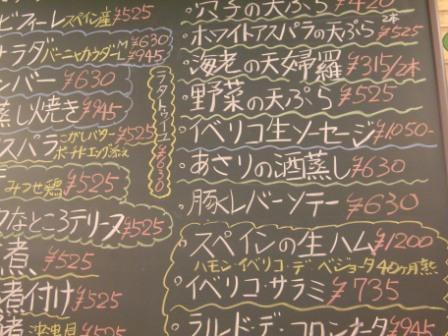 ビフィーレ スペイン産 ¥525
サラダ バーニャカウダーM ¥630
L ¥945
ンバー ¥630
蒸し焼き ¥945
スパラ こがしバター ¥525
ポーチドエッグ
みつせ鶏 ¥525
なところテリーヌ ¥525
煮 ¥525
煮付け ¥525
¥525
ラタトゥーユ ¥630
穴子の天ぷら ¥420
ホワイトアスパラの天ぷら 2本 ¥525
海老の天婦羅 ¥315/2本
野菜の天ぷら ¥525
イベリコ生ソーセージ ¥1050-
あさりの酒蒸し ¥630
豚レバーソテー ¥630
スペインの生ハム ¥1200
ハモン・イベリコ・デ・ベジョータ 40ヶ月熟
イベリコ・サラミ ¥735
ラルド・デ・コロンナータ ¥945